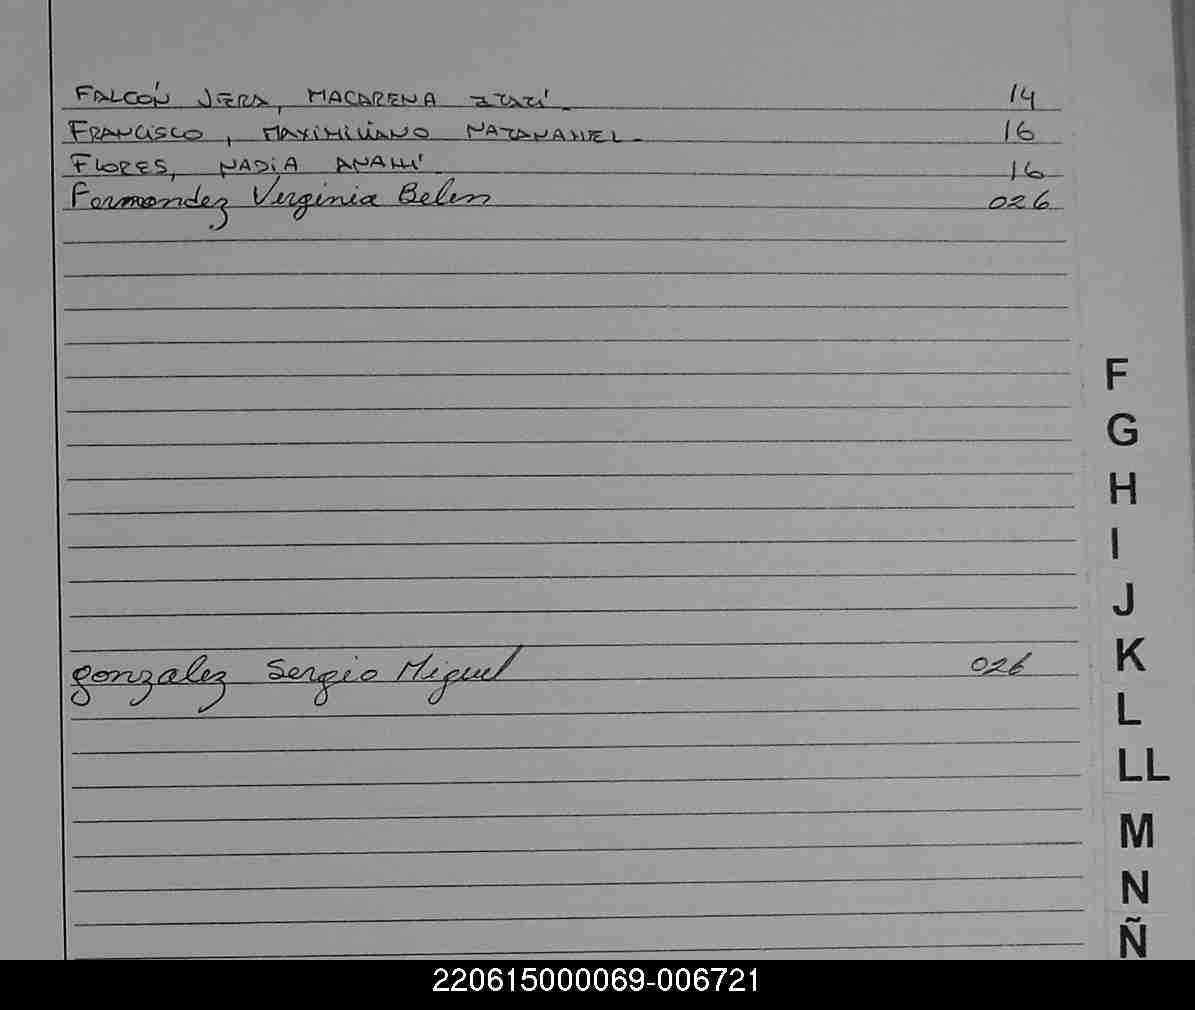 FALCÓN JERA, MACARENA ITATÍ. 14
FRANCISCO, MAXIMILIANO NATANAHEL. 16
FLORES, NADIA ANAHÍ. 16
Fernandez Verginia Belen 026
F
G
H
I
J
gonzalez Sergio Miguel 026
K
L
LL
M
N
Ñ
220615000069-006721